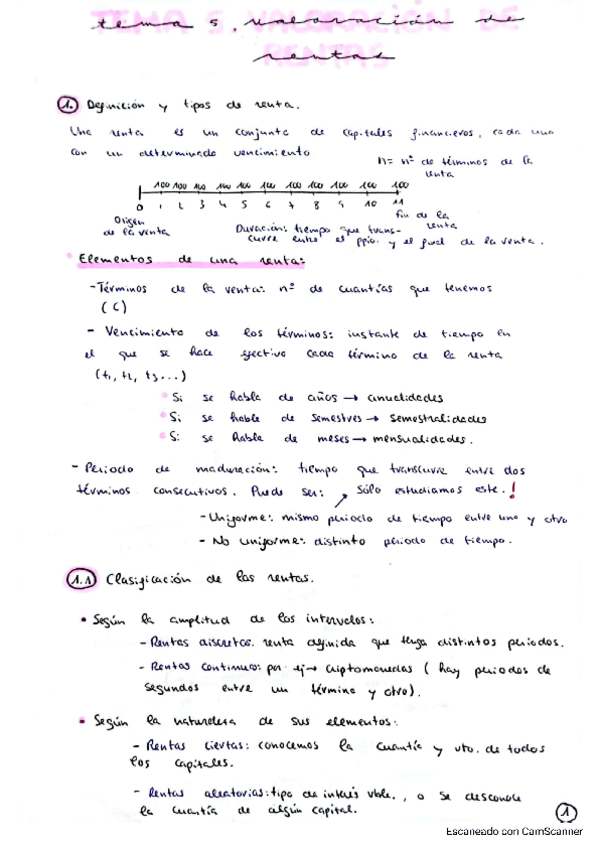 tema 5. valoración de
rentas
1. Definición y tipos de renta.
Una renta es un conjunto de capitales financieros, cada uno
con un determinado vencimiento
n = nº de términos de la
renta
100 100 100 100 100 100 100 100 100 100 100
0 1 2 3 4 5 6 7 8 9 10 11
Origen
de la renta
Duración: tiempo que trans-
curre entre el ppio. y el final de la renta.
fin de la
renta
Elementos de una renta:
- Términos de la renta: nº de cuantías que tenemos
(C)
- Vencimiento de los términos: instante de tiempo en
el que se hace efectivo cada término de la renta
(t1, t2, t3...)
Si se habla de años → anualidades
Si se hable de semestres → semestralidades
Si se habla de meses → mensualidades.
- Periodo de maduración: tiempo que transcurre entre dos
términos consecutivos. Puede ser: sólo estudiamos este. !
- Uniforme: mismo periodo de tiempo entre uno y otro
- No uniforme: distinto periodo de tiempo.
1.1 Clasificación de las rentas.
• Según la amplitud de los intervalos:
- Rentas discretas. renta definida que tenga distintos periodos.
- Rentas continuas: por ej → criptomonedas (hay periodos de
segundos entre un término y otro).
• Según la naturaleza de sus elementos:
- Rentas ciertas: conocemos la cuantía y vto. de todos
los capitales.
- Rentas aleatorias: tipo de interés vble., o se desconoce
la cuantía de algún capital.
1
Escaneado con CamScanner